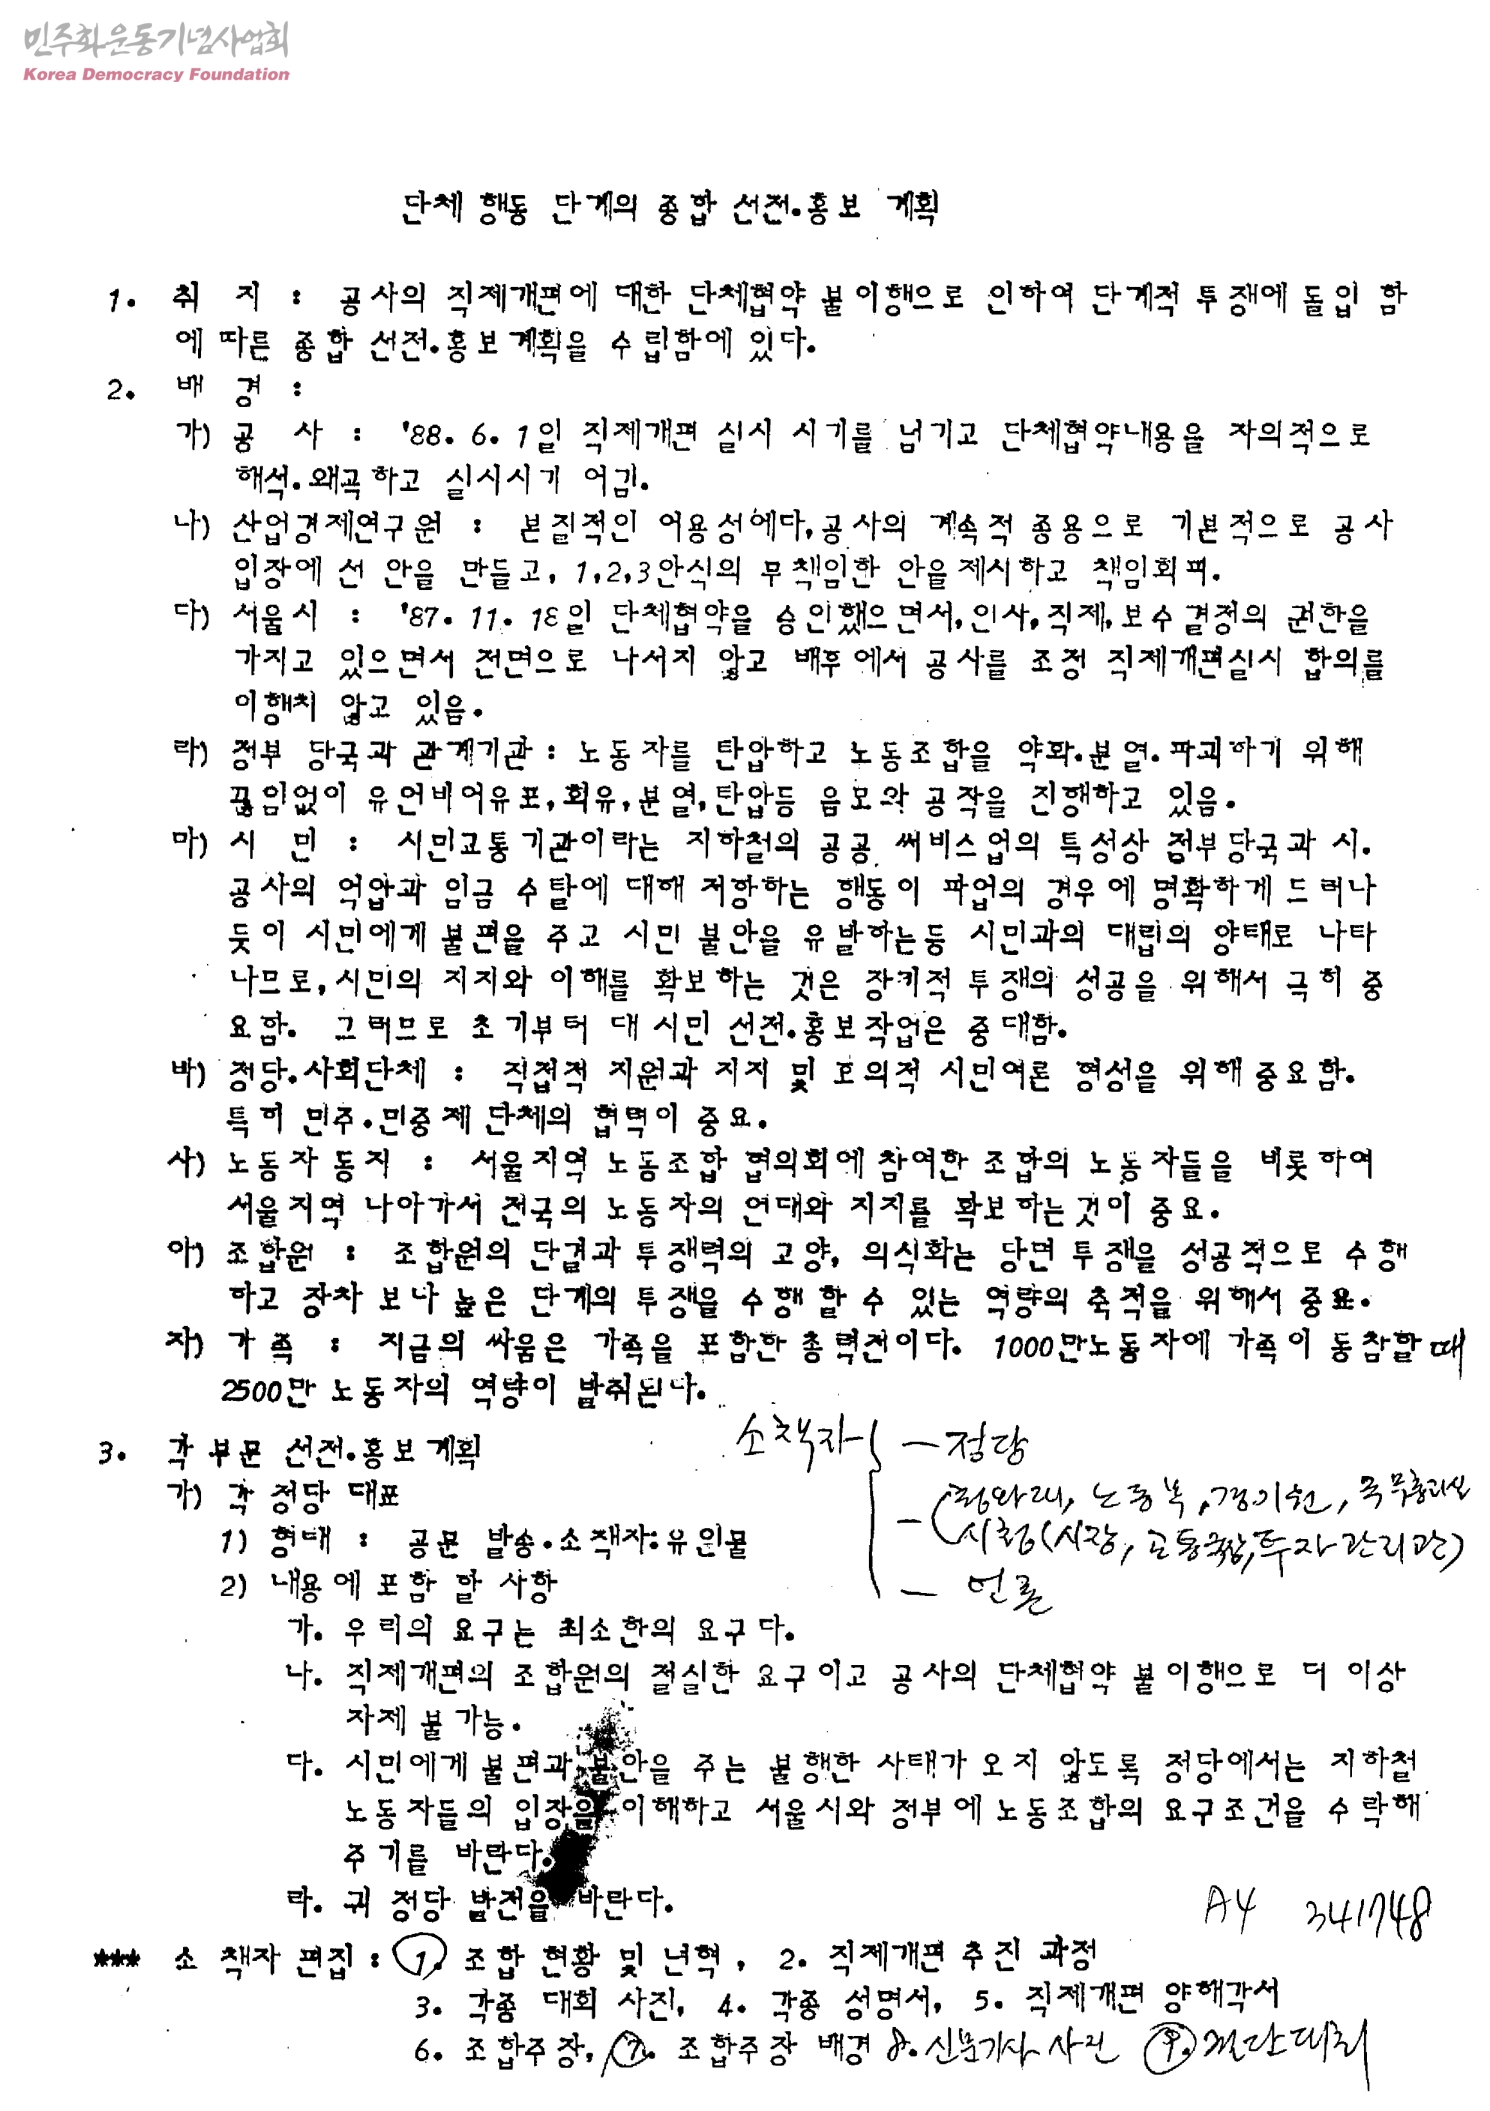 민주화운동기념사업회
Korea Democracy Foundation
단체 행동 단계의 종합 선전.홍보 계획
1. 취 지 : 공사의 직제개편에 대한 단체협약 불이행으로 인하여 단계적 투쟁에 돌입 함
에 따른 종합 선전.홍보계획을 수립함에 있다.
2. 배 경 :
가) 공 사 : '88. 6. 1일 직제개편 실시 시기를 넘기고 단체협약내용을 자의적으로
해석.왜곡하고 실시시기 어김.
나) 산업경제연구원 : 본질적인 어용성에다,공사의 계속적 종용으로 기본적으로 공사
입장에 선 안을 만들고, 1,2,3안식의 무책임한 안을 제시하고 책임회피.
다) 서울시 : '87. 11. 18일 단체협약을 승인했으면서,인사,직제,보수결정의 권한을
가지고 있으면서 전면으로 나서지 않고 배후에서 공사를 조정 직제개편실시 합의를
이행치 않고 있음.
라) 정부 당국과 관계기관 : 노동자를 탄압하고 노동조합을 약화.분열.파괴하기 위해
끊임없이 유언비어유포,회유,분열,탄압등 음모와 공작을 진행하고 있음.
마) 시 민 : 시민교통기관이라는 지하철의 공공 써비스업의 특성상 정부당국과 시.
공사의 억압과 임금 수탈에 대해 저항하는 행동이 파업의 경우에 명확하게 드러나
듯이 시민에게 불편을 주고 시민 불안을 유발하는등 시민과의 대립의 양태로 나타
나므로,시민의 지지와 이해를 확보하는 것은 장기적 투쟁의 성공을 위해서 극히 중
요함. 그러므로 초기부터 대 시민 선전.홍보작업은 중대함.
바) 정당.사회단체 : 직접적 지원과 지지 및 호의적 시민여론 형성을 위해 중요함.
특히 민주.민중제 단체의 협력이 중요.
사) 노동자 동지 : 서울지역 노동조합 협의회에 참여한 조합의 노동자들을 비롯하여
서울지역 나아가서 전국의 노동자의 연대와 지지를 확보하는것이 중요.
아) 조합원 : 조합원의 단결과 투쟁력의 고양, 의식화는 당면 투쟁을 성공적으로 수행
하고 장차 보다 높은 단계의 투쟁을 수행할 수 있는 역량의 축적을 위해서 중요.
자) 가 족 : 지금의 싸움은 가족을 포함한 총력전이다. 1000만노동자에 가족이 동참할때
2500만 노동자의 역량이 발취된다.
3. 각 부문 선전.홍보계획
소책자 - 정당
가) 각 정당 대표
- (청와대, 노동부, 경기원, 국무총리실
1) 형태 : 공문 발송.소책자:유인물
시청(시장, 교통국장,투자관리관)
2) 내용에 포함 할 사항
- 언론
가. 우리의 요구는 최소한의 요구다.
나. 직제개편의 조합원의 절실한 요구이고 공사의 단체협약 불이행으로 더 이상
자제 불가능.
다. 시민에게 불편과 불안을 주는 불행한 사태가 오지 않도록 정당에서는 지하철
노동자들의 입장을 이해하고 서울시와 정부에 노동조합의 요구조건을 수락해
주기를 바란다.
라. 귀 정당 발전을 바란다.
A4 341748
*** 소 책자 편집 : 1. 조합 현황 및 년혁, 2. 직제개편 추진 과정
3. 각종 대회 사진, 4. 각종 성명서, 5. 직제개편 양해각서
6. 조합주장, 7. 조합주장 배경 8. 신문기사 사진 9.